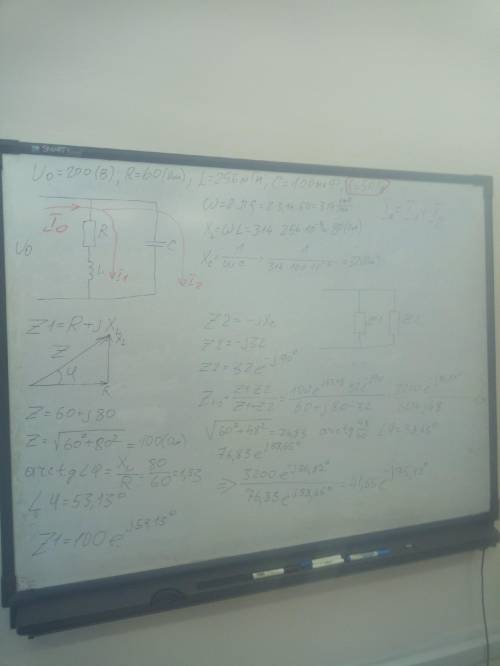 SMART
U0=200(В), R=60(Ом), L=256мГн, C=100мкФ, f=50Гц
ω=2πf=2·3,14·50=314
XL=ωL=314·256·10⁻³=80(Ом)
Xc=1/ωC=1/314·100·10⁻⁶=32(Ом)
I0
U0
R
L
C
I1
I2
Z1=R+jXL
Z
φ
XL
R
Z=60+j80
Z=√60²+80²=100(Ом)
arctg∠φ=XL/R=80/60=1,33
∠φ=53,13°
Z1=100e^j53,13°
Z2=-jXc
Z2=-j32
Z2=32e^-j90°
Z1
Z2
Z12=Z1·Z2/Z1+Z2=100e^j53,13°·32e^-j90°/60+j80-j32=3200e^-j36,87°/60+j48
√60²+48²=76,83 arctg 48/60 ∠φ=38,65°
76,83e^j38,65°
⇒ 3200e^-j36,87°/76,83e^j38,65°=41,65e^-j75,13°